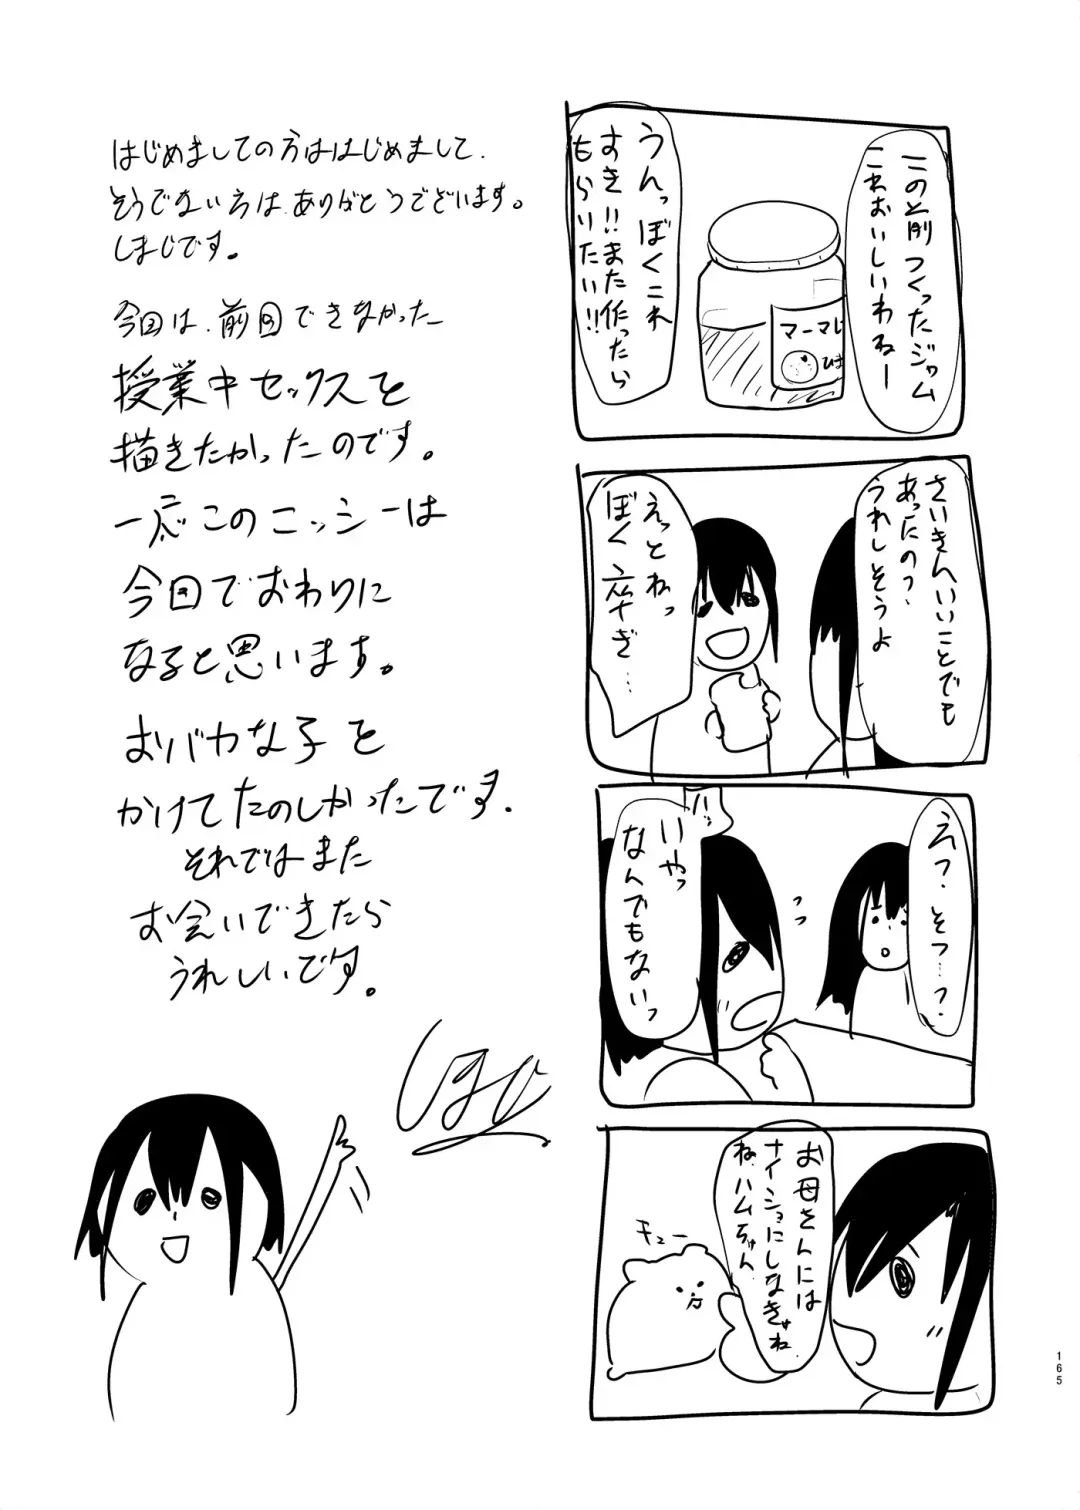 はじめましての方ははじめまして、
そうでない方は、ありがとうございます。
しまじです。
今回は、前回できなかった
授業中セックスを
描きたかったのです。
一応このニッシーは
今回でおわりに
なると思います。
おバカな子を
かけてたのしかったです。
それではまた
お会いできたら
うれしいです。
この前つくったジャム
これおいしいわねー
うんっぼくこれ
すき!!また作ったら
もらいたい!!
マーマレ
さいきんいいことでも
あったの?
うれしそうよ
えっとねっ
ぼく 卒ぎ…
えっ、そつ…?
いやっ
なんでもないっ
お母さんには
ナイショにしなきゃね
ね、ハムちゃん
チュー
165